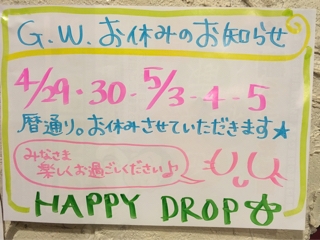 G.W.お休みのお知らせ
4/29・30-5/3-4-5
暦通り。お休みさせていただきます★
みなさま
楽しくお過ごしください♪
HAPPY DROP